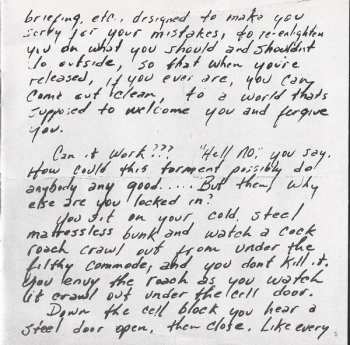 briefing, etc., designed to make you
sorry for your mistakes, to re-enlighten
you on what you should and shouldnt
do outside, so that when you're
released, if you ever are, you can
come out clean, to a world thats
supposed to welcome you and forgive
you.
Can it work??? "Hell NO," you say.
How could this torment possibly do
anybody any good..... But then, why
else are you locked in?
You sit on your cold, steel
mattressless bunk and watch a cock
roach crawl out from under the
filthy commode, and you dont kill it.
You envy the roach as you watch
it crawl out under the cell door.
Down the cell block you hear a
steel door open, then close. Like every